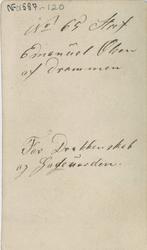 NF:1887-120
No 65 Stort
Emanuel Olsen
af Drammen
For Drukkenskab
og Gadeuorden.